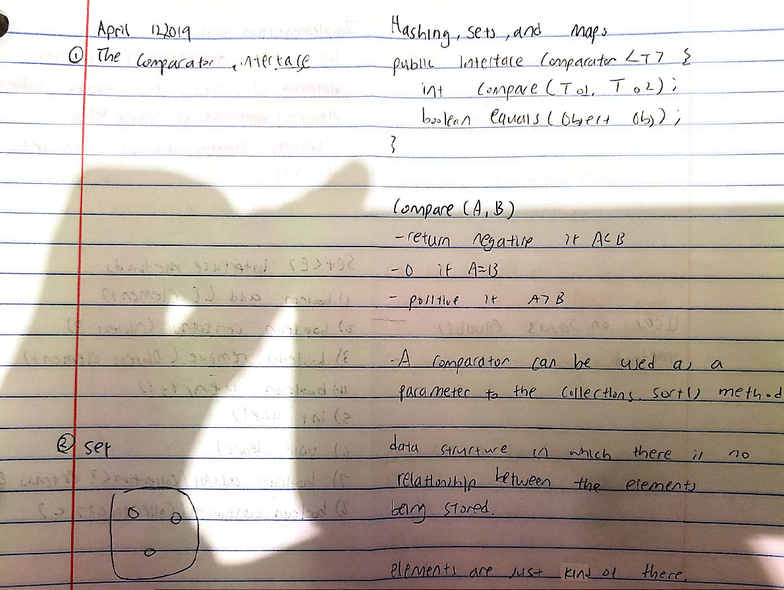 April 12 2019
Hashing, sets, and maps
① The Comparator interface
public Interface Comparator <T> {
int Compare (T o1, T o2);
boolean equals (Object obj);
}
Compare (A, B)
- return negative if A<B
- 0 if A=B
- positive if A>B
- A comparator can be used as a
parameter to the Collections.sort() method
② set
data structure in which there is no
relationship between the elements
being stored.
elements are just kind of there.